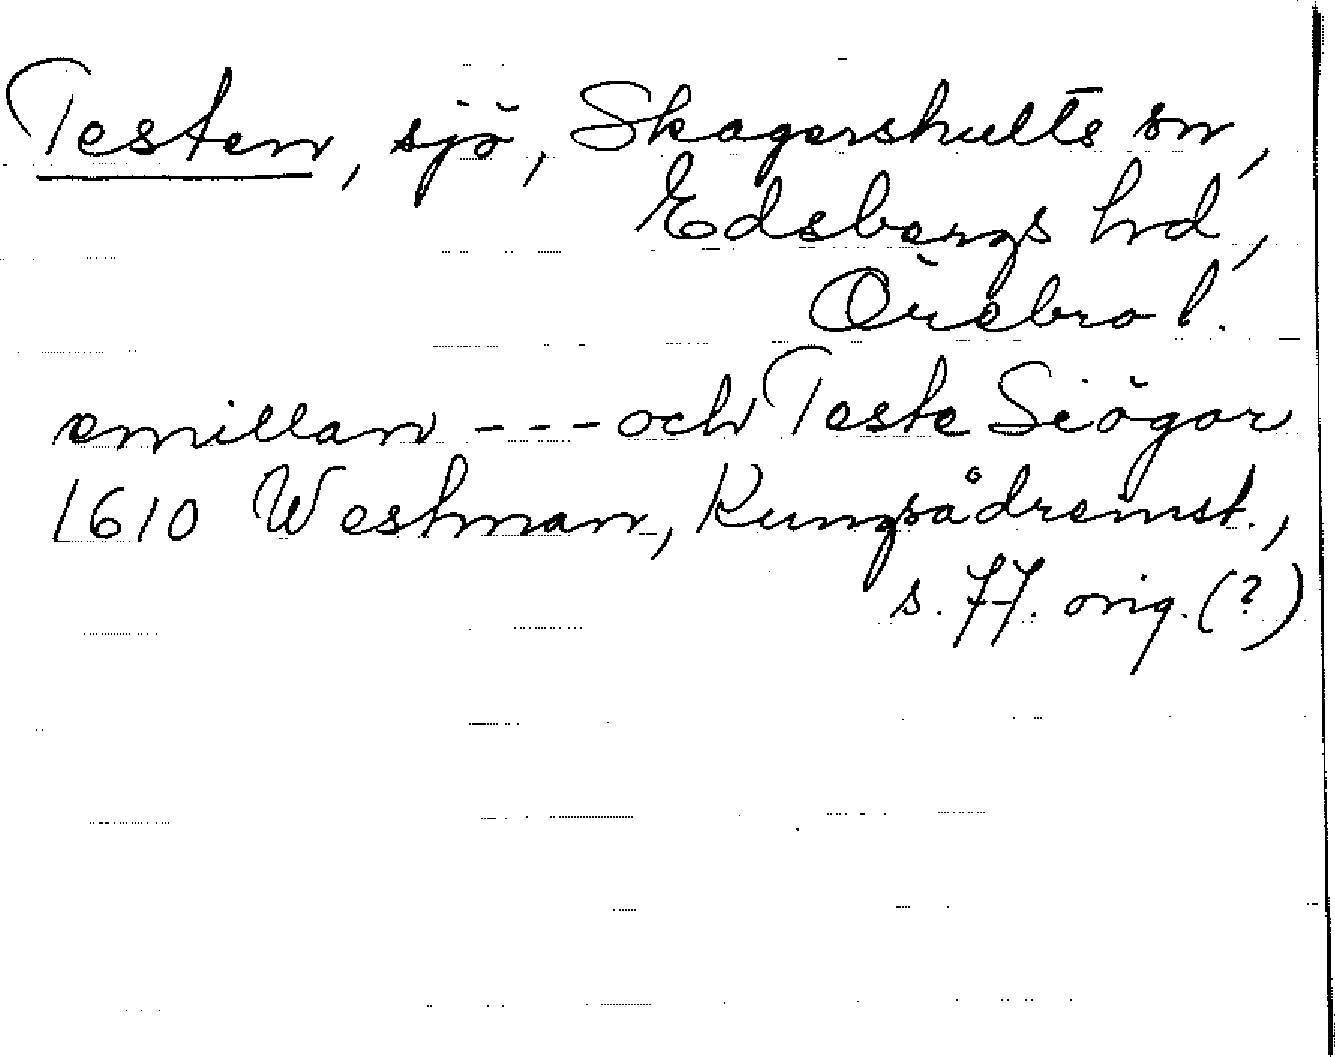 Testen, sjö, Skagershults sn,
Edsbergs hd,
Örebro l.
emillan --- och Teste Siögar
1610 Westman, Kungsådreinst.,
s. 77. orig. (?)